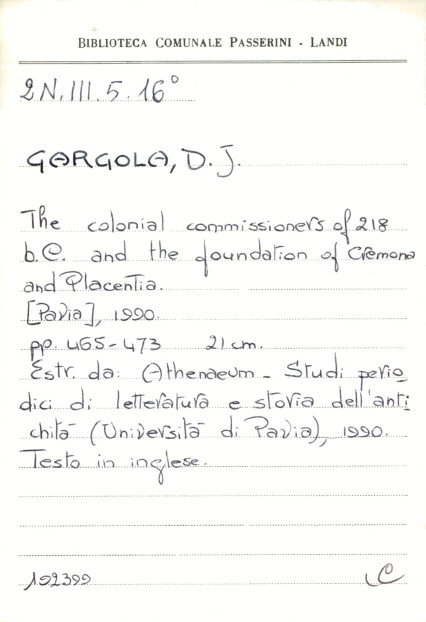 BIBLIOTECA COMUNALE PASSERINI - LANDI
2N.III.5.16°
GARGOLA, D.J.
The colonial commissioners of 218
b.C. and the foundation of Cremona
and Placentia.
[Pavia], 1990.
pp. 465-473 21 cm.
Estr. da: Athenaeum - Studi perio
dici di letteratura e storia dell'anti
chità (Università di Pavia), 1990.
Testo in inglese.
192399 C